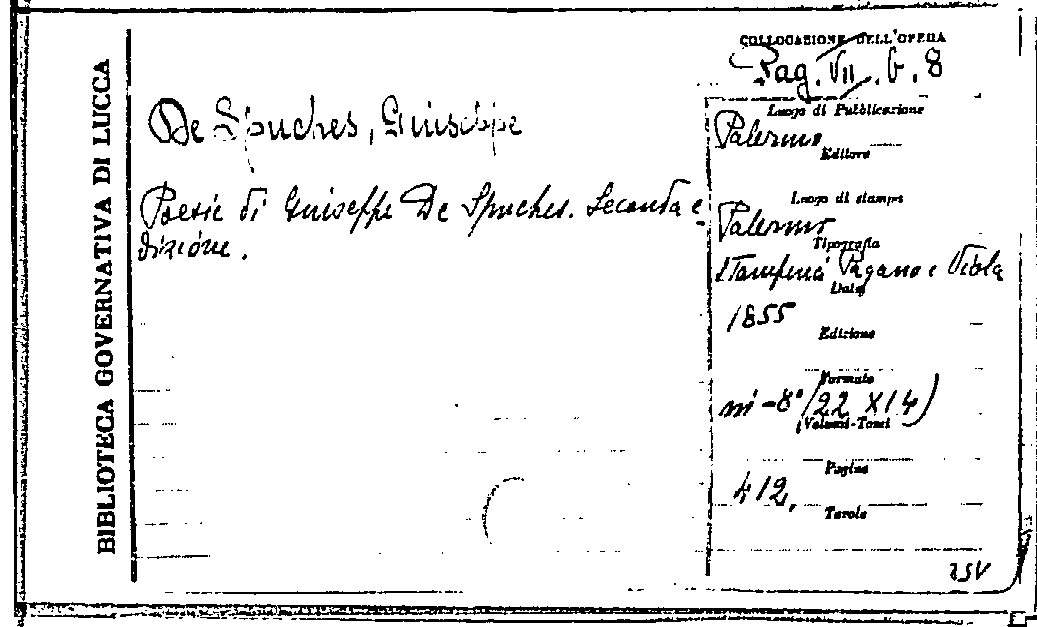 BIBLIOTECA GOVERNATIVA DI LUCCA
De Spuches, Giuseppe
Poesie di Giuseppe De Spuches. Seconda e-
dizione.
COLLOCAZIONE DELL'OPERA
Pag. VII. b. 8
Luogo di Pubblicazione
Palermo
Editore
Luogo di stampa
Palermo
Tipografia
Stamperia Pagano e Viola
Data
1855
Edizione
Formato
in-8° (22 X 14)
Volumi-Tomi
Pagine
412.
Tavole